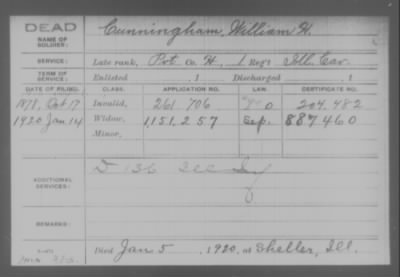 DEAD
NAME OF SOLDIER:
Cunningham, William H.
SERVICE:
Late rank, Pvt Co. H, 1 Reg't Ill. Cav.
TERM OF SERVICE:
Enlisted , 1 Discharged , 1
DATE OF FILING. CLASS. APPLICATION NO. LAW. CERTIFICATE NO.
1878, Oct 17 Invalid, 261 706 204,482
1920 Jan. 14 Widow, 1,151,257 Sep. 887460
Minor,
ADDITIONAL SERVICES:
D 136 Ill Inf
REMARKS:
Died Jan 5, 1920, at Sheller, Ill.